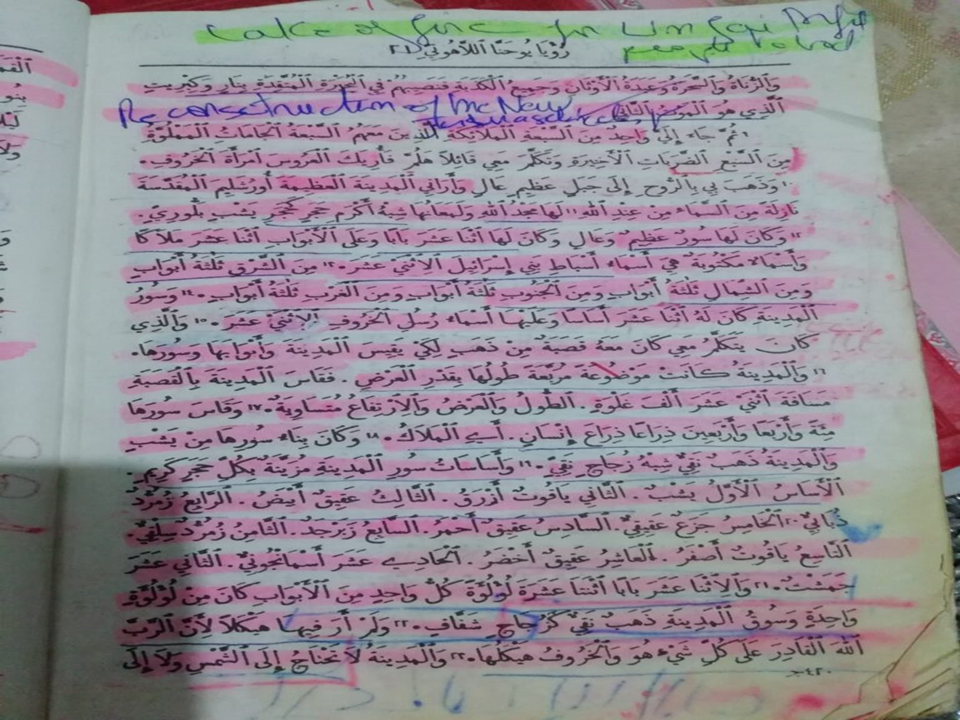 Lake of fire for
رؤيا يوحنا اللاهوتي ٢١
وَٱلزُّنَاةُ وَٱلسَّحَرَةُ وَعَبَدَةُ ٱلْأَوْثَانِ وَجَمِيعُ ٱلْكَذَبَةِ فَنَصِيبُهُمْ فِي ٱلْبُحَيْرَةِ ٱلْمُتَّقِدَةِ بِنَارٍ وَكِبْرِيتٍ
ٱلَّذِي هُوَ ٱلْمَوْتُ ٱلثَّانِي
Reconsetruction of the New
٩ ثُمَّ جَاءَ إِلَيَّ وَاحِدٌ مِنَ ٱلسَّبْعَةِ ٱلْمَلَائِكَةِ ٱلَّذِينَ مَعَهُمُ ٱلسَّبْعَةُ ٱلْجَامَاتُ ٱلْمَمْلُوَّةُ
مِنَ ٱلسَّبْعِ ٱلضَّرَبَاتِ ٱلْأَخِيرَةِ وَتَكَلَّمَ مَعِي قَائِلًا هَلُمَّ فَأُرِيَكَ ٱلْعَرُوسَ ٱمْرَأَةَ ٱلْخَرُوفِ.
١٠ وَذَهَبَ بِي بِٱلرُّوحِ إِلَى جَبَلٍ عَظِيمٍ عَالٍ وَأَرَانِي ٱلْمَدِينَةَ ٱلْعَظِيمَةَ أُورُشَلِيمَ ٱلْمُقَدَّسَةَ
نَازِلَةً مِنَ ٱلسَّمَاءِ مِنْ عِنْدِ ٱللهِ ١١ لَهَا مَجْدُ ٱللهِ وَلَمَعَانُهَا شِبْهُ أَكْرَمِ حَجَرٍ كَحَجَرِ يَشْبٍ بَلُّورِيٍّ.
١٢ وَكَانَ لَهَا سُورٌ عَظِيمٌ وَعَالٍ وَكَانَ لَهَا ٱثْنَا عَشَرَ بَابًا وَعَلَى ٱلْأَبْوَابِ ٱثْنَا عَشَرَ مَلَاكًا
وَأَسْمَاءٌ مَكْتُوبَةٌ هِيَ أَسْمَاءُ أَسْبَاطِ بَنِي إِسْرَائِيلَ ٱلِٱثْنَيْ عَشَرَ. ١٣ مِنَ ٱلشَّرْقِ ثَلَثَةُ أَبْوَابٍ
وَمِنَ ٱلشِّمَالِ ثَلَثَةُ أَبْوَابٍ وَمِنَ ٱلْجَنُوبِ ثَلَثَةُ أَبْوَابٍ وَمِنَ ٱلْغَرْبِ ثَلَثَةُ أَبْوَابٍ. ١٤ وَسُورُ
ٱلْمَدِينَةِ كَانَ لَهُ ٱثْنَا عَشَرَ أَسَاسًا وَعَلَيْهَا أَسْمَاءُ رُسُلِ ٱلْخَرُوفِ ٱلِٱثْنَيْ عَشَرَ. ١٥ وَٱلَّذِي
كَانَ يَتَكَلَّمُ مَعِي كَانَ مَعَهُ قَصَبَةٌ مِنْ ذَهَبٍ لِكَيْ يَقِيسَ ٱلْمَدِينَةَ وَأَبْوَابَهَا وَسُورَهَا.
١٦ وَٱلْمَدِينَةُ كَانَتْ مَوْضُوعَةً مُرَبَّعَةً طُولُهَا بِقَدْرِ ٱلْعَرْضِ. فَقَاسَ ٱلْمَدِينَةَ بِٱلْقَصَبَةِ
مَسَافَةَ ٱثْنَيْ عَشَرَ أَلْفَ غَلْوَةٍ. ٱلطُّولُ وَٱلْعَرْضُ وَٱلِٱرْتِفَاعُ مُتَسَاوِيَةٌ. ١٧ وَقَاسَ سُورَهَا
مِئَةً وَأَرْبَعًا وَأَرْبَعِينَ ذِرَاعًا ذِرَاعَ إِنْسَانٍ. أَيِ ٱلْمَلَاكُ. ١٨ وَكَانَ بِنَاءُ سُورِهَا مِنْ يَشْبٍ
وَٱلْمَدِينَةُ ذَهَبٌ نَقِيٌّ شِبْهُ زُجَاجٍ نَقِيٍّ. ١٩ وَأَسَاسَاتُ سُورِ ٱلْمَدِينَةِ مُزَيَّنَةٌ بِكُلِّ حَجَرٍ كَرِيمٍ.
ٱلْأَسَاسُ ٱلْأَوَّلُ يَشْبٌ. ٱلثَّانِي يَاقُوتٌ أَزْرَقُ. ٱلثَّالِثُ عَقِيقٌ أَبْيَضُ. ٱلرَّابِعُ زُمُرُّدٌ
ذُبَابِيٌّ. ٢٠ ٱلْخَامِسُ جَزَعٌ عَقِيقِيٌّ. ٱلسَّادِسُ عَقِيقٌ أَحْمَرُ. ٱلسَّابِعُ زَبَرْجَدٌ. ٱلثَّامِنُ زُمُرُّدٌ سِلْقِيٌّ.
ٱلتَّاسِعُ يَاقُوتٌ أَصْفَرُ. ٱلْعَاشِرُ عَقِيقٌ أَخْضَرُ. ٱلْحَادِي عَشَرَ أَسْمَانْجُونِيٌّ. ٱلثَّانِي عَشَرَ
جَمَشْتٌ. ٢١ وَٱلِٱثْنَا عَشَرَ بَابًا ٱثْنَتَا عَشَرَةَ لُؤْلُؤَةً كُلُّ وَاحِدٍ مِنَ ٱلْأَبْوَابِ كَانَ مِنْ لُؤْلُؤَةٍ
وَاحِدَةٍ وَسُوقُ ٱلْمَدِينَةِ ذَهَبٌ نَقِيٌّ كَزُجَاجٍ شَفَّافٍ. ٢٢ وَلَمْ أَرَ فِيهَا هَيْكَلًا لِأَنَّ ٱلرَّبَّ
ٱللهَ ٱلْقَادِرَ عَلَى كُلِّ شَيْءٍ هُوَ وَٱلْخَرُوفُ هَيْكَلُهَا. ٢٣ وَٱلْمَدِينَةُ لَا تَحْتَاجُ إِلَى ٱلشَّمْسِ وَلَا إِلَى
٤٢٠